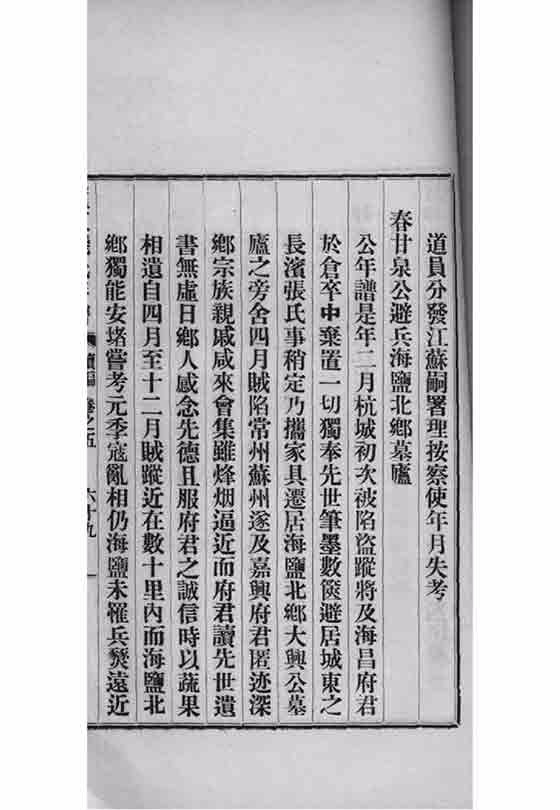 道員分發江蘇嗣署理按察使年月失考
春甘泉公避兵海鹽北鄉墓廬
公年譜是年二月杭城初次被陷盜蹤將及海昌府君
於倉卒中棄置一切獨奉先世筆墨數篋避居城東之
長濱張氏事稍定乃攜家具遷居海鹽北鄉大興公墓
廬之旁舍四月賊陷常州蘇州遂及嘉興府君匿迹深
鄉宗族親戚咸來會集雖烽烟逼近而府君讀先世遺
書無虛日鄉人感念先德且服府君之誠信時以蔬果
相遺自四月至十二月賊蹤近在數十里內而海鹽北
鄉獨能安堵嘗考元季寇亂相仍海鹽未罹兵燹遠近
續編 卷之五 六十九